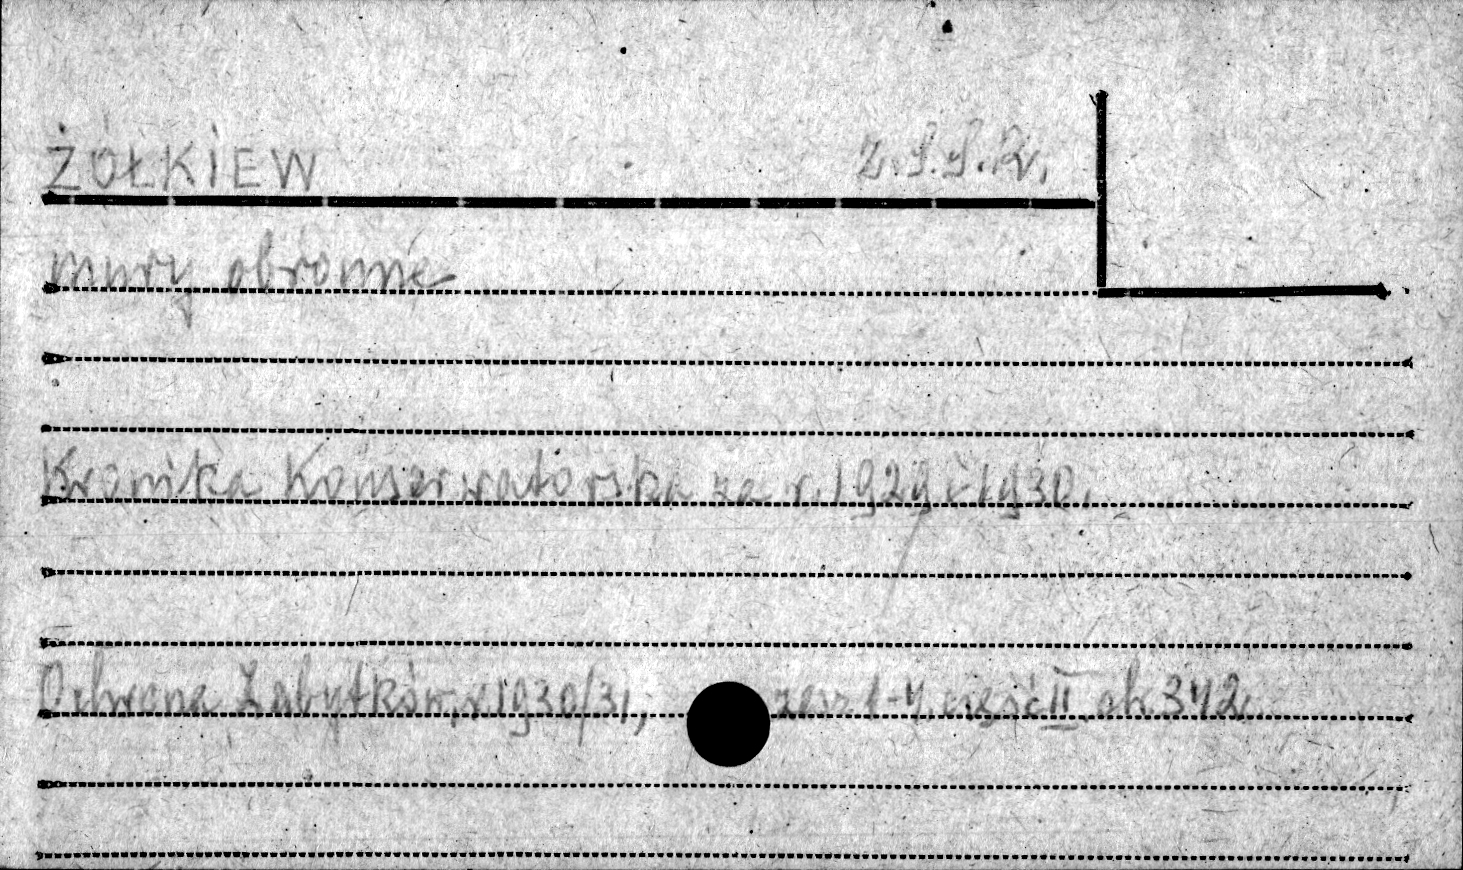 ŻÓŁKIEW Z.S.S.R.
mury obronne
Kronika Konserwatorska za r. 1929 i 1930.
Ochrona Zabytków, r. 1930/31, zesz 1-4, część II ok 342.